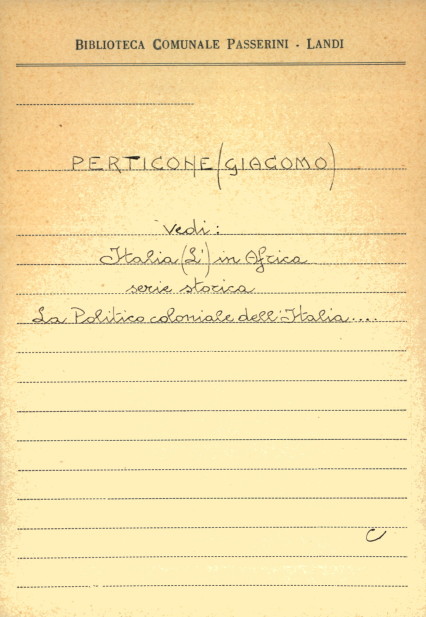 BIBLIOTECA COMUNALE PASSERINI - LANDI
PERTICONE (GIACOMO)
Vedi:
Italia (L') in Africa
serie storica
La Politica coloniale dell'Italia....
C